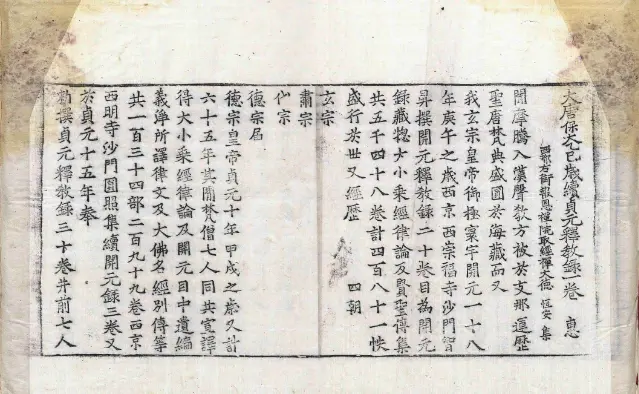 大唐保大乙巳歲續貞元釋教錄一卷 惠
西都右街報恩禪院取經禪大德 恒安 集
聞摩騰入漢聲教方被於支那歷
聖唐梵典盛圓於海藏而又
我玄宗皇帝御極寰宇開元一十八
年庚午之歲西京西崇福寺沙門智
昇撰開元釋教錄二十卷目為開元
錄藏揔大小乘經律論及賢聖傳集
共五千四十八卷計四百八十一帙
盛行於世又經歷 四朝
玄宗
肅宗
代宗
德宗
德宗皇帝貞元十年甲戌之歲又計
六十五年其間梵僧七人同共宣譯
得大小乘經律論及開元目中遺編
義淨所譯律文及大佛名經別傳等
共一百三十四部二百九十九卷西京
西明寺沙門圓照集續開元錄三卷又
於貞元十五年奉
勑撰貞元釋教錄三十卷并前七人